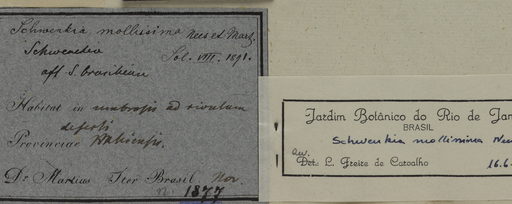 Schwenkia mollissima Nees et Mart.
Schwenckia Sol. VIII. 1891.
aff S. brasiliensi
Habitat in umbrosis ad rivulum
deserti
Provinciae Bahiensis.
Dr. Martius Iter Brasil. Nov.
n. 1877
Jardim Botânico do Rio de Jan
BRASIL
Schwenkia mollissima Nee
Det: L. Freire de Carvalho
16.6.